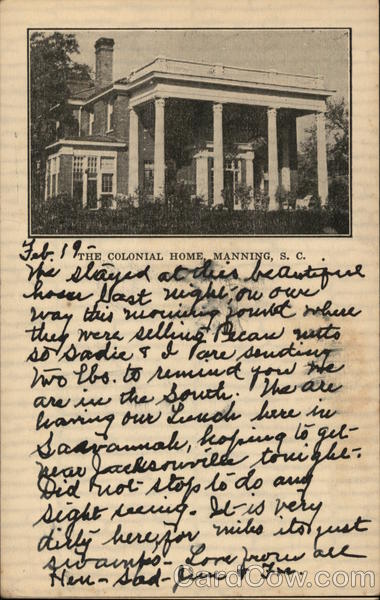 THE COLONIAL HOME, MANNING, S. C.
Feb. 19-
We stayed at this beautiful
house last night, on our
way this morning found where
they were selling Pecan nuts
so Sadie & I are sending
two lbs. to remind you we
are in the South. We are
having our Lunch here in
Savannah, hoping to get
near Jacksonville tonight.
Did not stop to do any
sight seeing. It is very
dirty here, for miles its just
swamps- Love from all
Hen - Sad -
CardCow.com